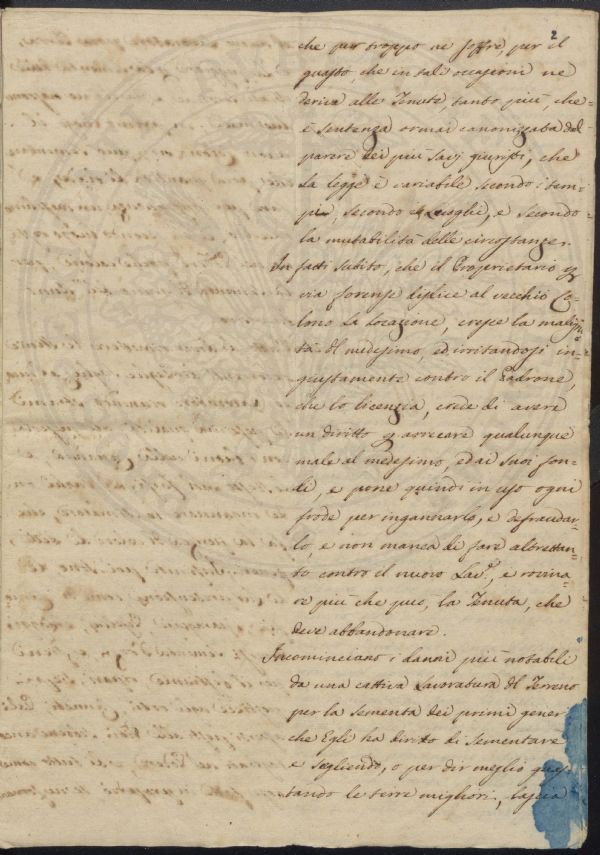 2
che pur troppo ne soffre, per il
guasto, che in tali occasioni ne
deriva alle Tenute, tanto più, che
è sentenza ormai canonizata dal
parere dei più savj giuristi, che
la legge è variabile secondo i tem-
pi, secondo i Luoghi, e secondo
la mutabilità delle circostanze.
In fatti subito, che il Proprietario p
via forense disdice al vecchio Co-
lono la Locazione, cresce la maligni-
tà del medesimo, ed irritandosi in-
giustamente contro il Padrone,
che lo licenzia, crede di avere
un diritto p arrecare qualunque
male al medesimo, ed ai suoi fon-
di, e pone quindi in uso ogni
frode per ingannarlo, e defraudar-
lo, e non manca di fare altrettan-
to contro il nuovo Lav.e, e rovina-
re più che può, la Tenuta, che
deve abbandonare.
Incominciano i danni più notabili
da una cattiva Lavoratura del Terreno
per la sementa dei primi gener
che Egli ha diritto di sementare
e scegliendo, o per dir meglio gua-
stando le terre migliori, lascia